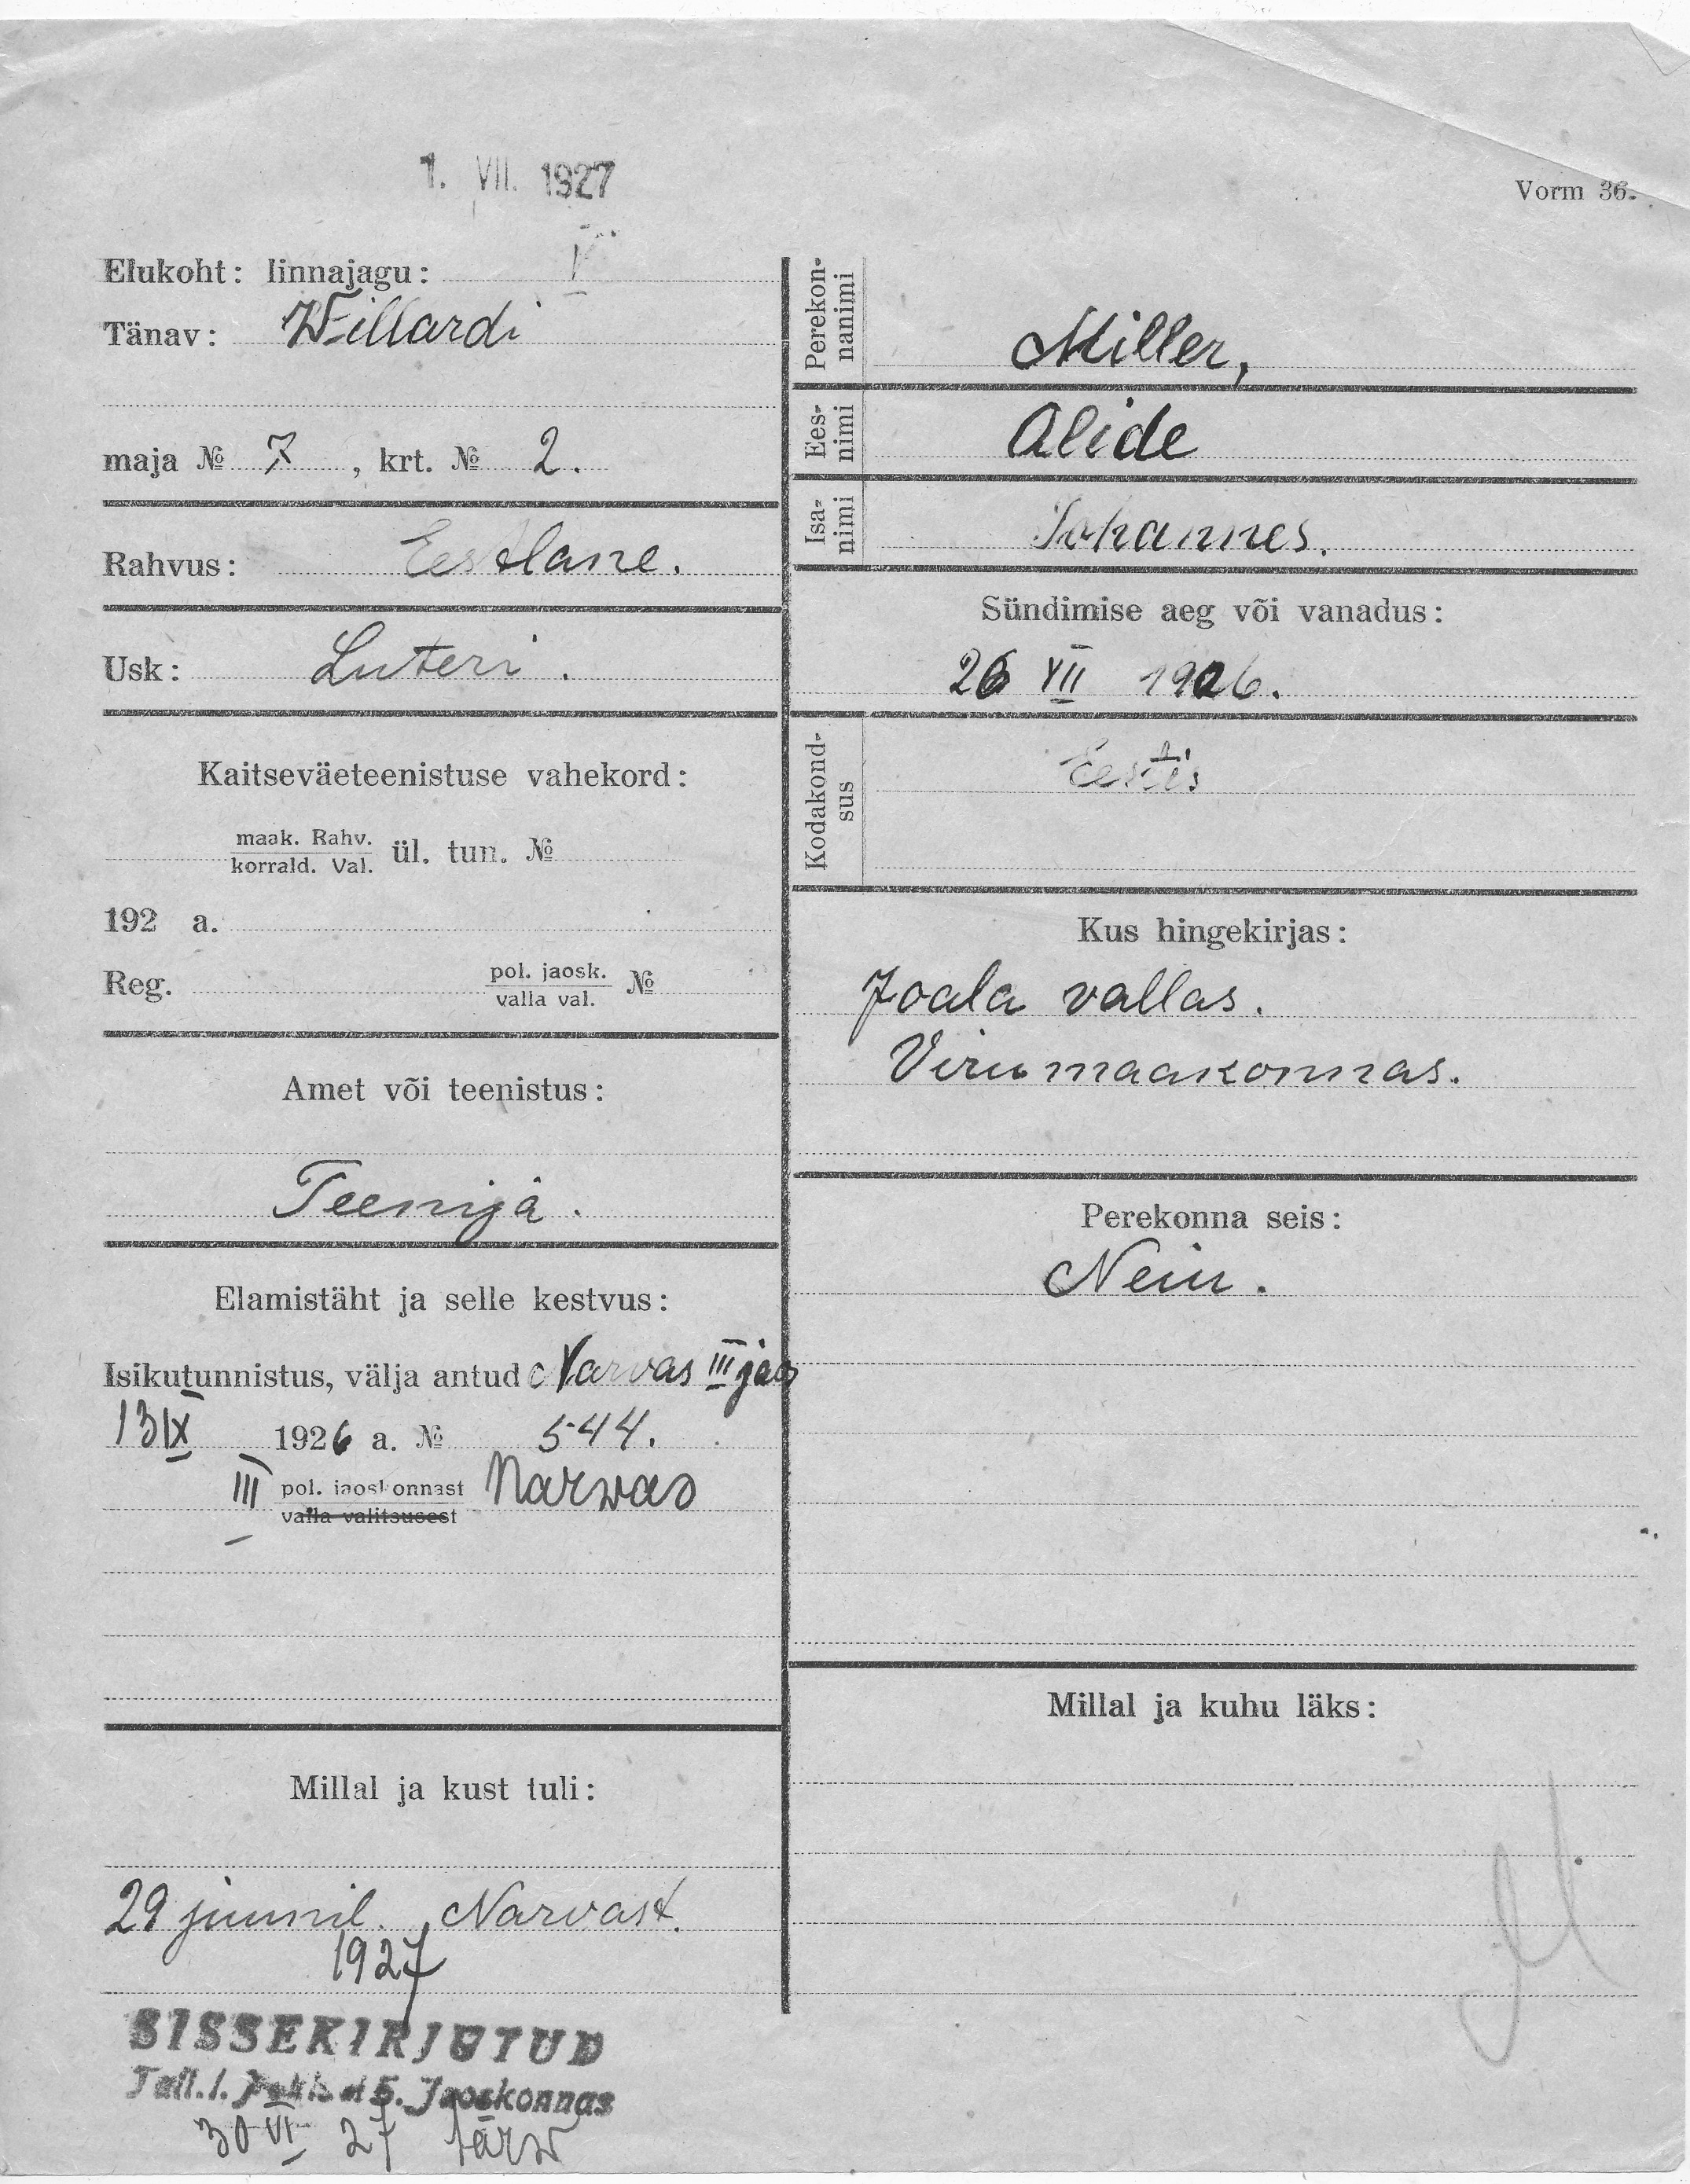 1. VII. 1927
Vorm 36.
Elukoht: linnajagu: V
Tänav: Willardi
maja № 7, krt. № 2.
Rahvus: Eestlane.
Usk: Luteri.
Kaitseväeteenistuse vahekord:
maak. Rahv.
korrald. Val. ül. tun. №
192 a.
Reg. pol. jaosk.
valla val. №
Amet või teenistus:
Teenija.
Elamistäht ja selle kestvus:
Isikutunnistus, välja antud Narvas III jaos
13 IX 1926 a. № 544.
III pol. jaoskonnast Narwas
valla valitsusest
Millal ja kust tuli:
29 juunil. Narvast.
1927
SISSEKIRJUTUD
Tall. l. 5. Jaoskonnas
30 VI 27
Perekon-
nanimi
Miller,
Ees-
nimi
Alide
Isa-
nimi
Johannes.
Sündimise aeg või vanadus:
26 VII 1906.
Kodakond-
sus
Eestis
Kus hingekirjas:
Joala vallas.
Virumaakonnas.
Perekonna seis:
Neiu.
Millal ja kuhu läks: